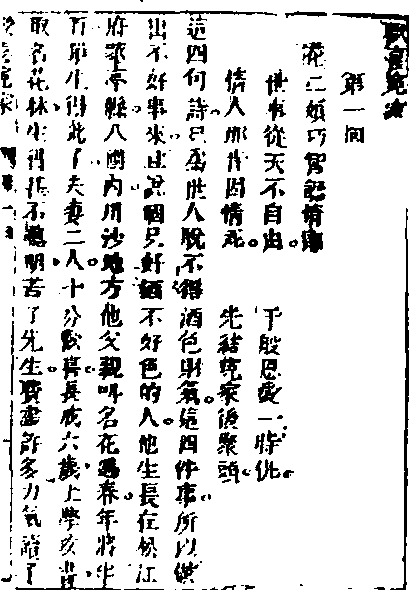 歡喜冤家
第一回
花二娘巧智認情郎
世事從天不自由。千般恩愛一時仇。
情人那肯因情死。先結冤家後聚頭。
這四句詩只為世人脫不得酒色財氣。這四件事。所以做
出不好事來。且說個只好酒不好色的人。他生長在松江
府華亭縣八團內川沙地方。他父親叫名花遇春。年將半
百。單生得此子。夫妻二人十分歡喜。長成六歲。上學攻書。
取名花林。生得甚不聰明。苦了先生。費盡許多力氣。讀了